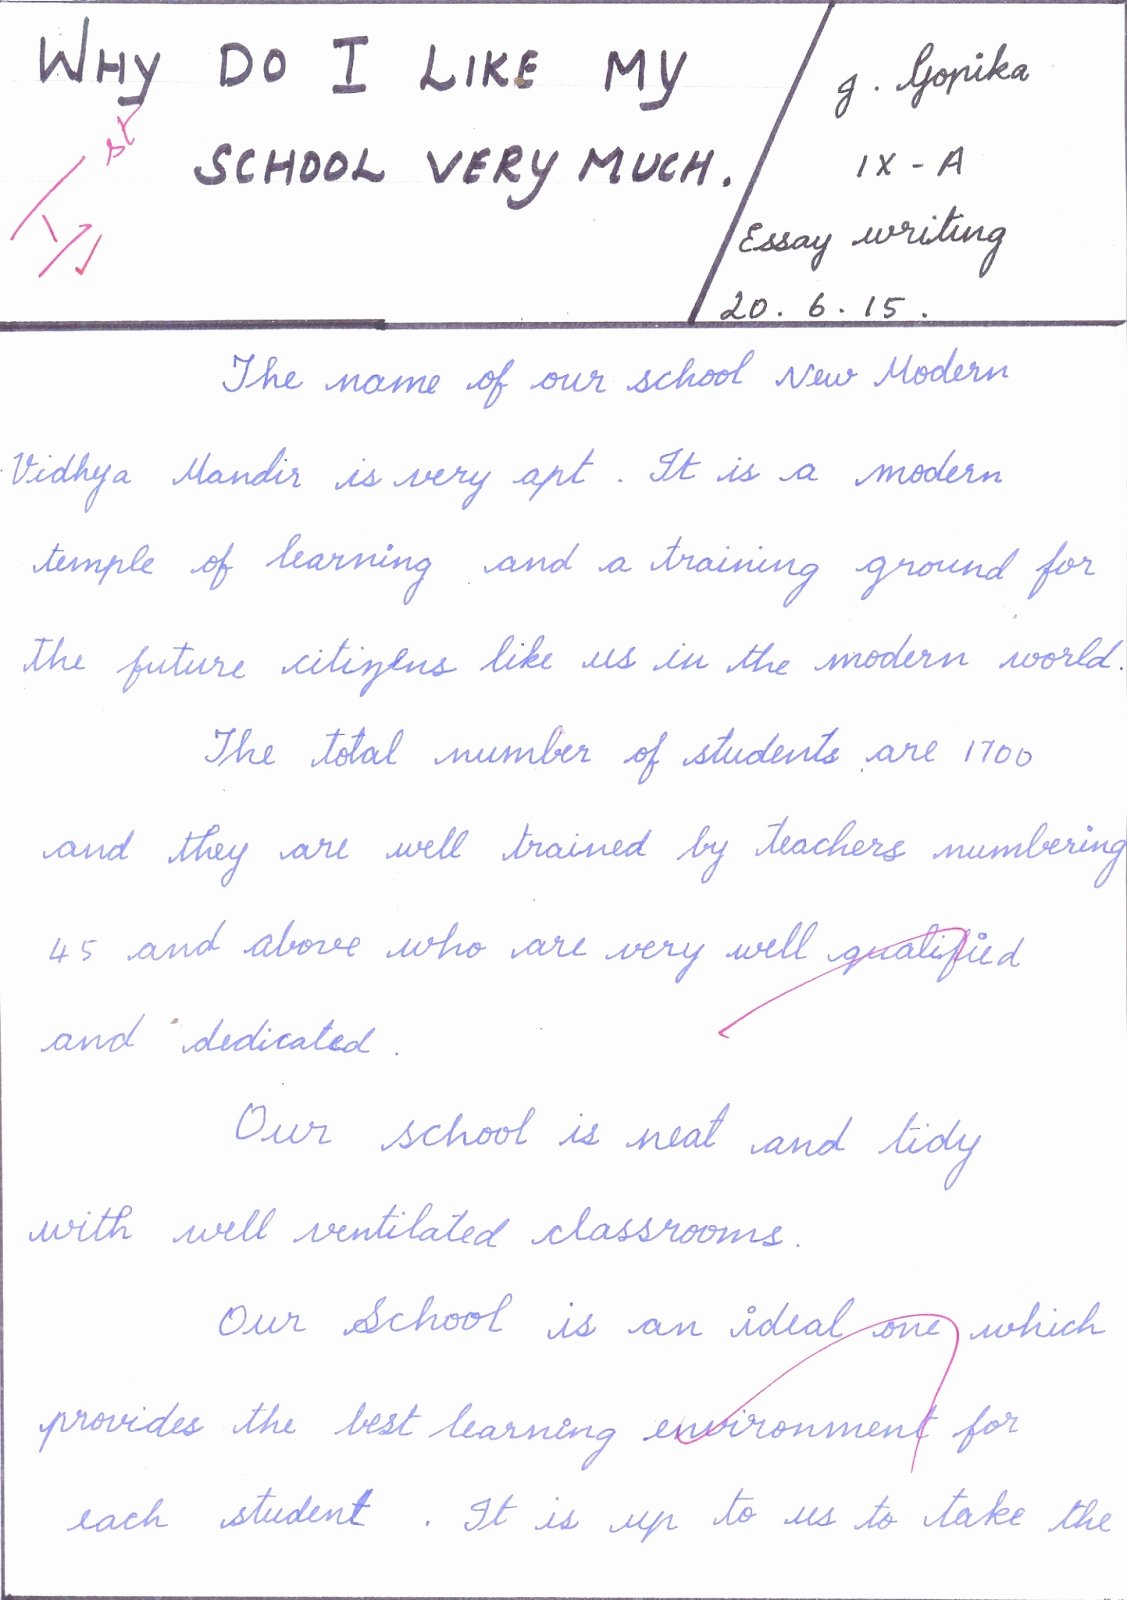 WHY DO I LIKE MY
SCHOOL VERY MUCH.
1st
g. Gopika
IX - A
Essay writing
20. 6. 15.
The name of our school New Modern
Vidhya Mandir is very apt. It is a modern
temple of learning and a training ground for
the future citizens like us in the modern world.
The total number of students are 1700
and they are well trained by teachers numbering
45 and above who are very well qualified
and dedicated.
Our school is neat and tidy
with well ventilated classrooms.
Our School is an ideal one which
provides the best learning environment for
each student. It is up to us to take the